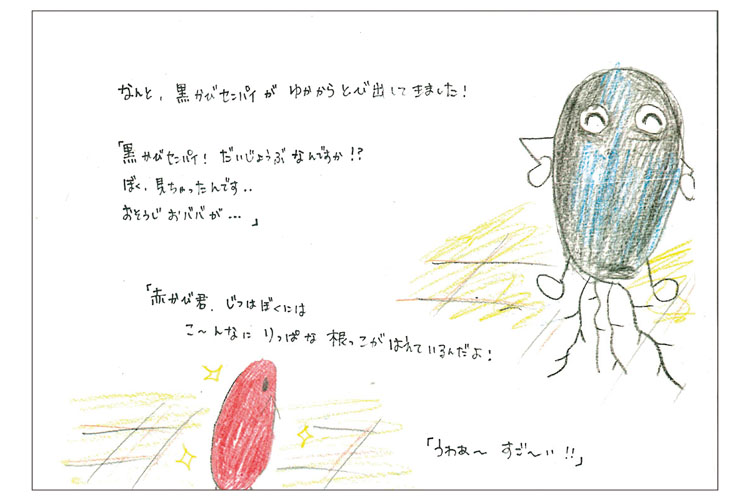 なんと、黒かびセンパイが ゆかからとび出してきました!
「黒かびセンパイ! だいじょうぶなんですか!?
ぼく、見ちゃったんです..
おそうじおババが…」
「赤かび君、じつはぼくには
こ〜んなに りっぱな 根っこがはえているんだよ!
「うわぁ〜 すご〜い!!」